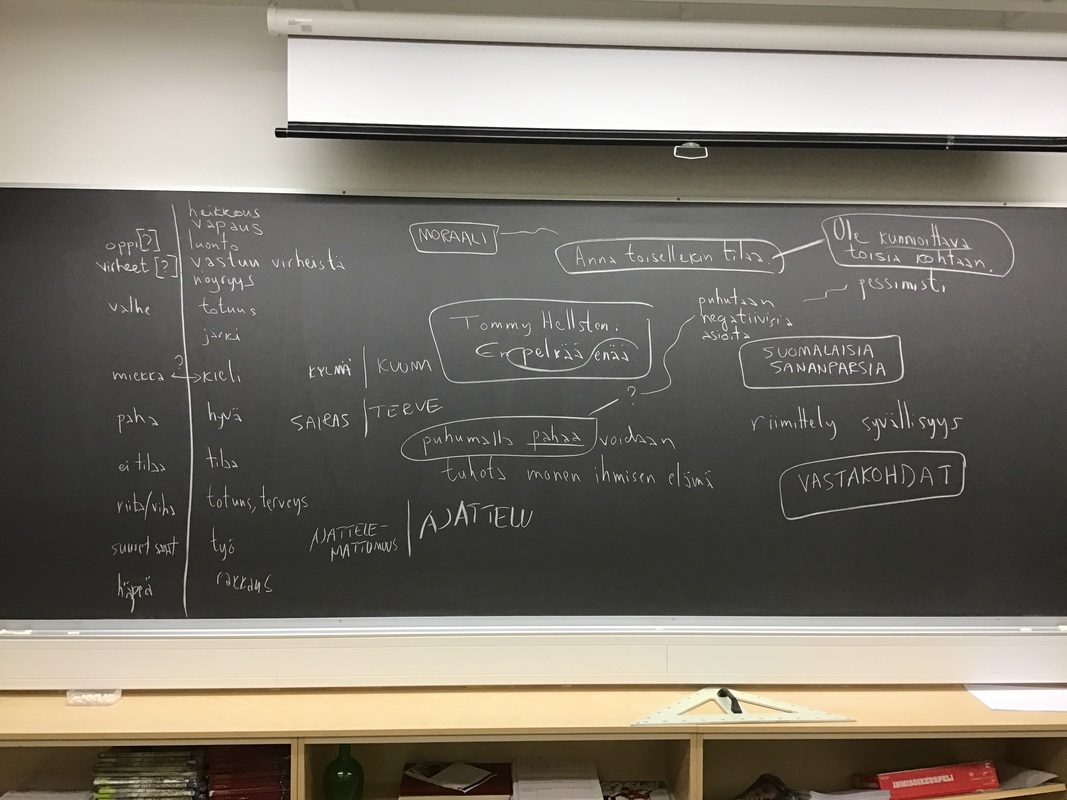 heikkous
vapaus
oppi[?] luonto
virheet [?] vastuu virheistä
nöyryys
valhe totuus
järki
?
miekka kieli
paha hyvä
ei tilaa tilaa
riita/viha totuus, terveys
suuret sanat työ
häpeä rakkaus
KYLMÄ KUUMA
SAIRAS TERVE
AJATTELE-
MATTOMUUS AJATTELU
MORAALI
Anna toisellekin tilaa.
Ole kunnioittava
toisia kohtaan.
pessimisti
puhutaan
negatiivisia
asioita
Tommy Hellsten:
En pelkää enää
?
puhumalla pahaa voidaan
tuhota monen ihmisen elämä
SUOMALAISIA
SANANPARSIA
riimittely syvällisyys
VASTAKOHDAT
IHMISOIKEUSPELI